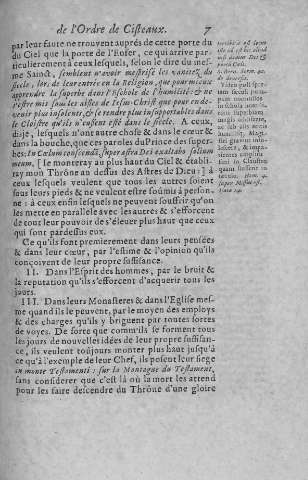 de l'Ordre de Cisteaux. 7
par leur faute ne trouvent auprés de cette porte du
du Ciel que la porte de l'Enfer, ce qui arrive par-
ticulierement à ceux lesquels, selon le dire du mes-
me Sainct, semblent n'avoir mesprisé les vanitez du
siecle, lors de leur entrée en la Religion, que pour mieux
apprendre la superbe dans l'Eschole de l'humilité: & ne
s'estre mis sous les aisles de Jesus-Christ que pour en de-
venir plus insolents, & se rendre plus insupportables dans
le Cloistre qu'ils n'eussent esté dans le siecle. A ceux,
dis-je, lesquels n'ont autre chose & dans le cœur & dans
la bouche, que ces paroles du Prince des super-
bes: In Cœlum conscendã, super astra Dei exaltabo solium
meum, [Je monteray au plus haut du Ciel & establi-
ray mon Thrône au dessus des Astres de Dieu:] à
ceux lesquels veulent que tous les autres soient
sous leurs pieds & ne veulent estre soûmis à person-
ne: à ceux enfin lesquels ne peuvent souffrir qu'on
les mette en parallele avec les autres & s'efforcent
de tout leur pouvoir de s'éleuer plus haut que ceux
qui sont pardessus eux.
Ce qu'ils font premierement dans leurs pensées
& dans leur cœur, par l'estime & l'opinion qu'ils
conçoivent de leur propre suffisance.
II. Dans l'Esprit des hommes, par le bruit &
la reputation qu'ils s'efforcent d'acquerir tous les
jours.
III. Dans leurs Monasteres & dans l'Eglise mes-
me quand ils le peuvent, par le moyen des employs
& des charges qu'ils y briguent par toutes sortes
de voyes. De sorte que comm'ils se forment tous
les jours de nouvelles idées de leur propre suffisan-
ce, ils veulent toujours monter plus haut jusqu'à
ce qu'à l'exemple de leur Chef, ils posent leur siege
in monte Testamenti: sur la Montagne du Testament,
sans considerer que c'est là où la mort les attend
pour les faire descendre du Thrône d'une gloire
Video post spre-
tam seculi pom-
pam nonnullos
in schola humi-
litatis superbiam
magis